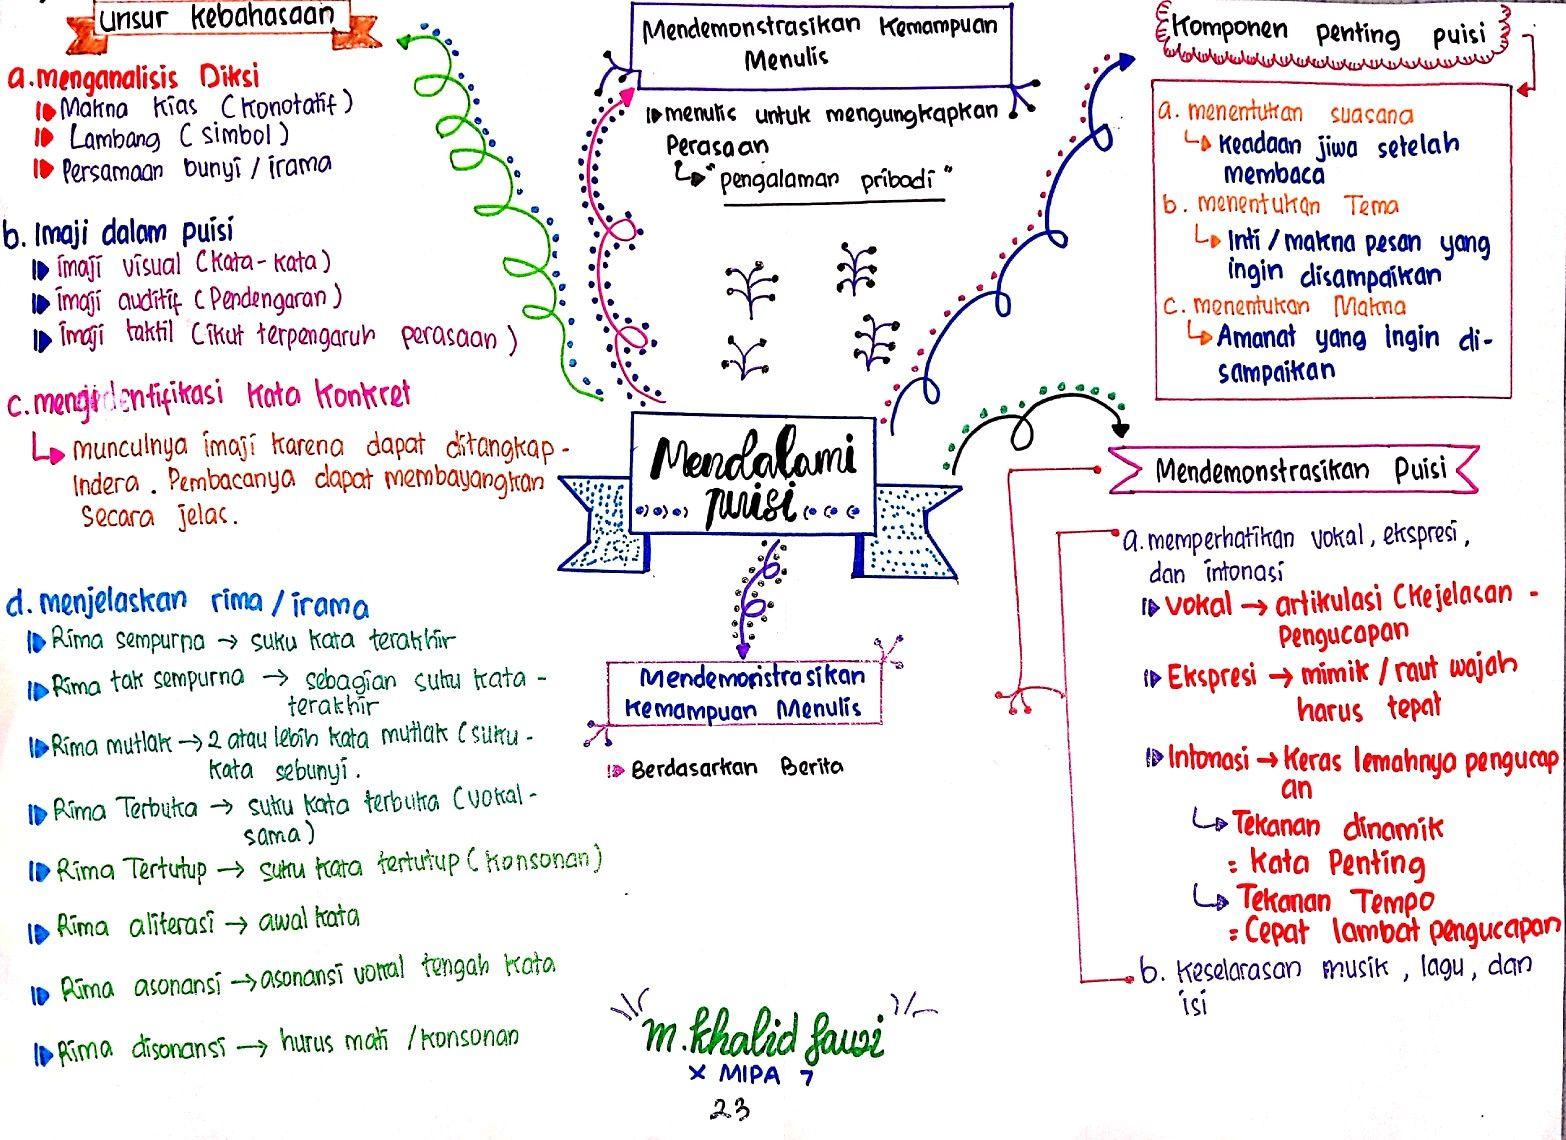 Unsur Kebahasaan
a. menganalisis Diksi
Makna Kias (Konotatif)
Lambang (simbol)
Persamaan bunyi / irama
b. Imaji dalam puisi
imaji visual (Kata-kata)
imaji auditif (Pendengaran)
imaji taktil (ikut terpengaruh perasaan)
c. mengidentifikasi Kata Konkret
munculnya imaji karena dapat ditangkap -
Indera. Pembacanya dapat membayangkan
secara jelas.
d. menjelaskan rima / irama
Rima sempurna → suku kata terakhir
Rima tak sempurna → sebagian suku kata -
terakhir
Rima mutlak → 2 atau lebih kata mutlak (suku -
kata sebunyi.
Rima Terbuka → suku kata terbuka (vokal -
sama)
Rima Tertutup → suku kata tertutup (Konsonan)
Rima aliterasi → awal kata
Rima asonansi → asonansi vokal tengah kata
Rima disonansi → hurus mati / konsonan
Mendemonstrasikan Kemampuan
Menulis
menulis untuk mengungkapkan
Perasaan
"pengalaman pribadi"
Mendalami
puisi
Mendemonstrasikan
Kemampuan Menulis
Berdasarkan Berita
m. khalid fauzi
X MIPA 7
23
Komponen penting puisi
a. menentukan suasana
Keadaan jiwa setelah
membaca
b. menentukan Tema
Inti / makna pesan yang
ingin disampaikan
c. menentukan Makna
Amanat yang ingin di-
sampaikan
Mendemonstrasikan Puisi
a. memperhatikan vokal, ekspresi,
dan intonasi
Vokal → artikulasi (Kejelasan -
Pengucapan
Ekspresi → mimik / raut wajah
harus tepat
Intonasi → Keras lemahnya pengucap
an
Tekanan dinamik
= Kata Penting
Tekanan Tempo
= Cepat lambat pengucapan
b. Keselarasan musik, lagu, dan
isi